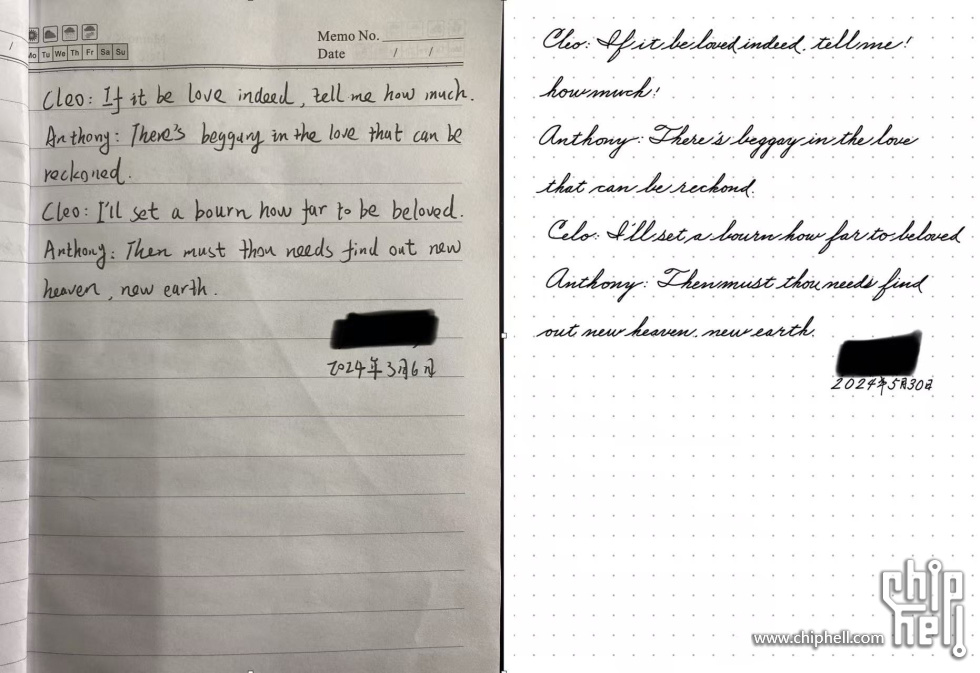 Memo No.
Mo Tu We Th Fr Sa Su
Date / /
Cleo: If it be love indeed, tell me how much.
Anthony: There's beggary in the love that can be
reckoned.
Cleo: I'll set a bourn how far to be beloved.
Anthony: Then must thou needs find out new
heaven, new earth.
2024年3月6日
Cleo: If it be loved indeed. tell me!
how much!
Anthony: There's beggay in the love
that can be reckond.
Celo: I'll set a bourn how far to beloved
Anthony: Then must thou needs find
out new heaven. new earth.
2024年5月30日
www.chiphell.com
chip
hell